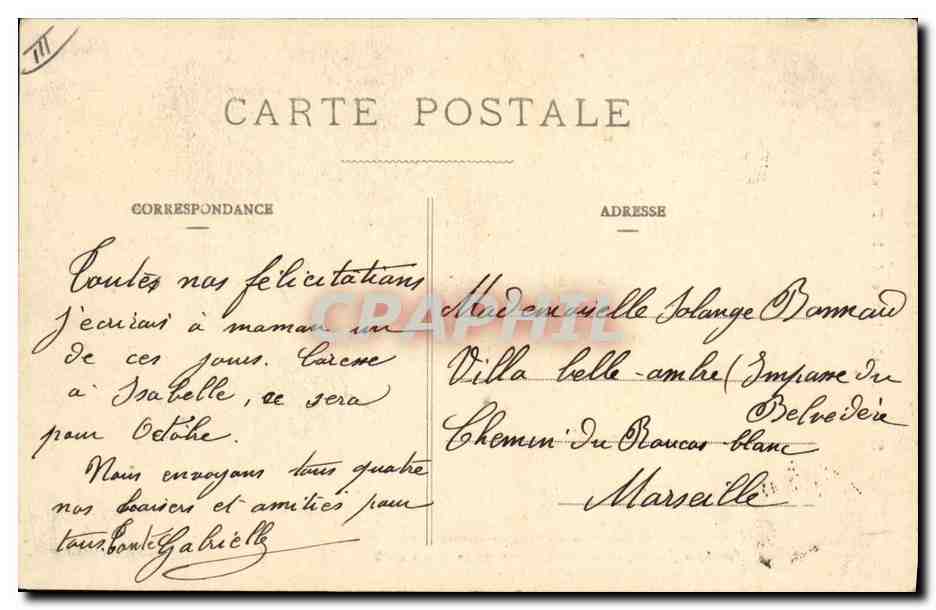 III
CARTE POSTALE
CORRESPONDANCE
Toutes nos félicitations
j'ecrirais à maman un
de ces jours. Caresse
à Isabelle, ce sera
pour Octobre.
Nous envoyons tous quatre
nos baisers et amitiés pour
tous. Tante Gabrielle
ADRESSE
Mademoiselle Solange Bonnaud
Villa belle-ambre (Impasse du
Belvédère
Chemin du Roucas blanc
Marseille
CPAPHIL